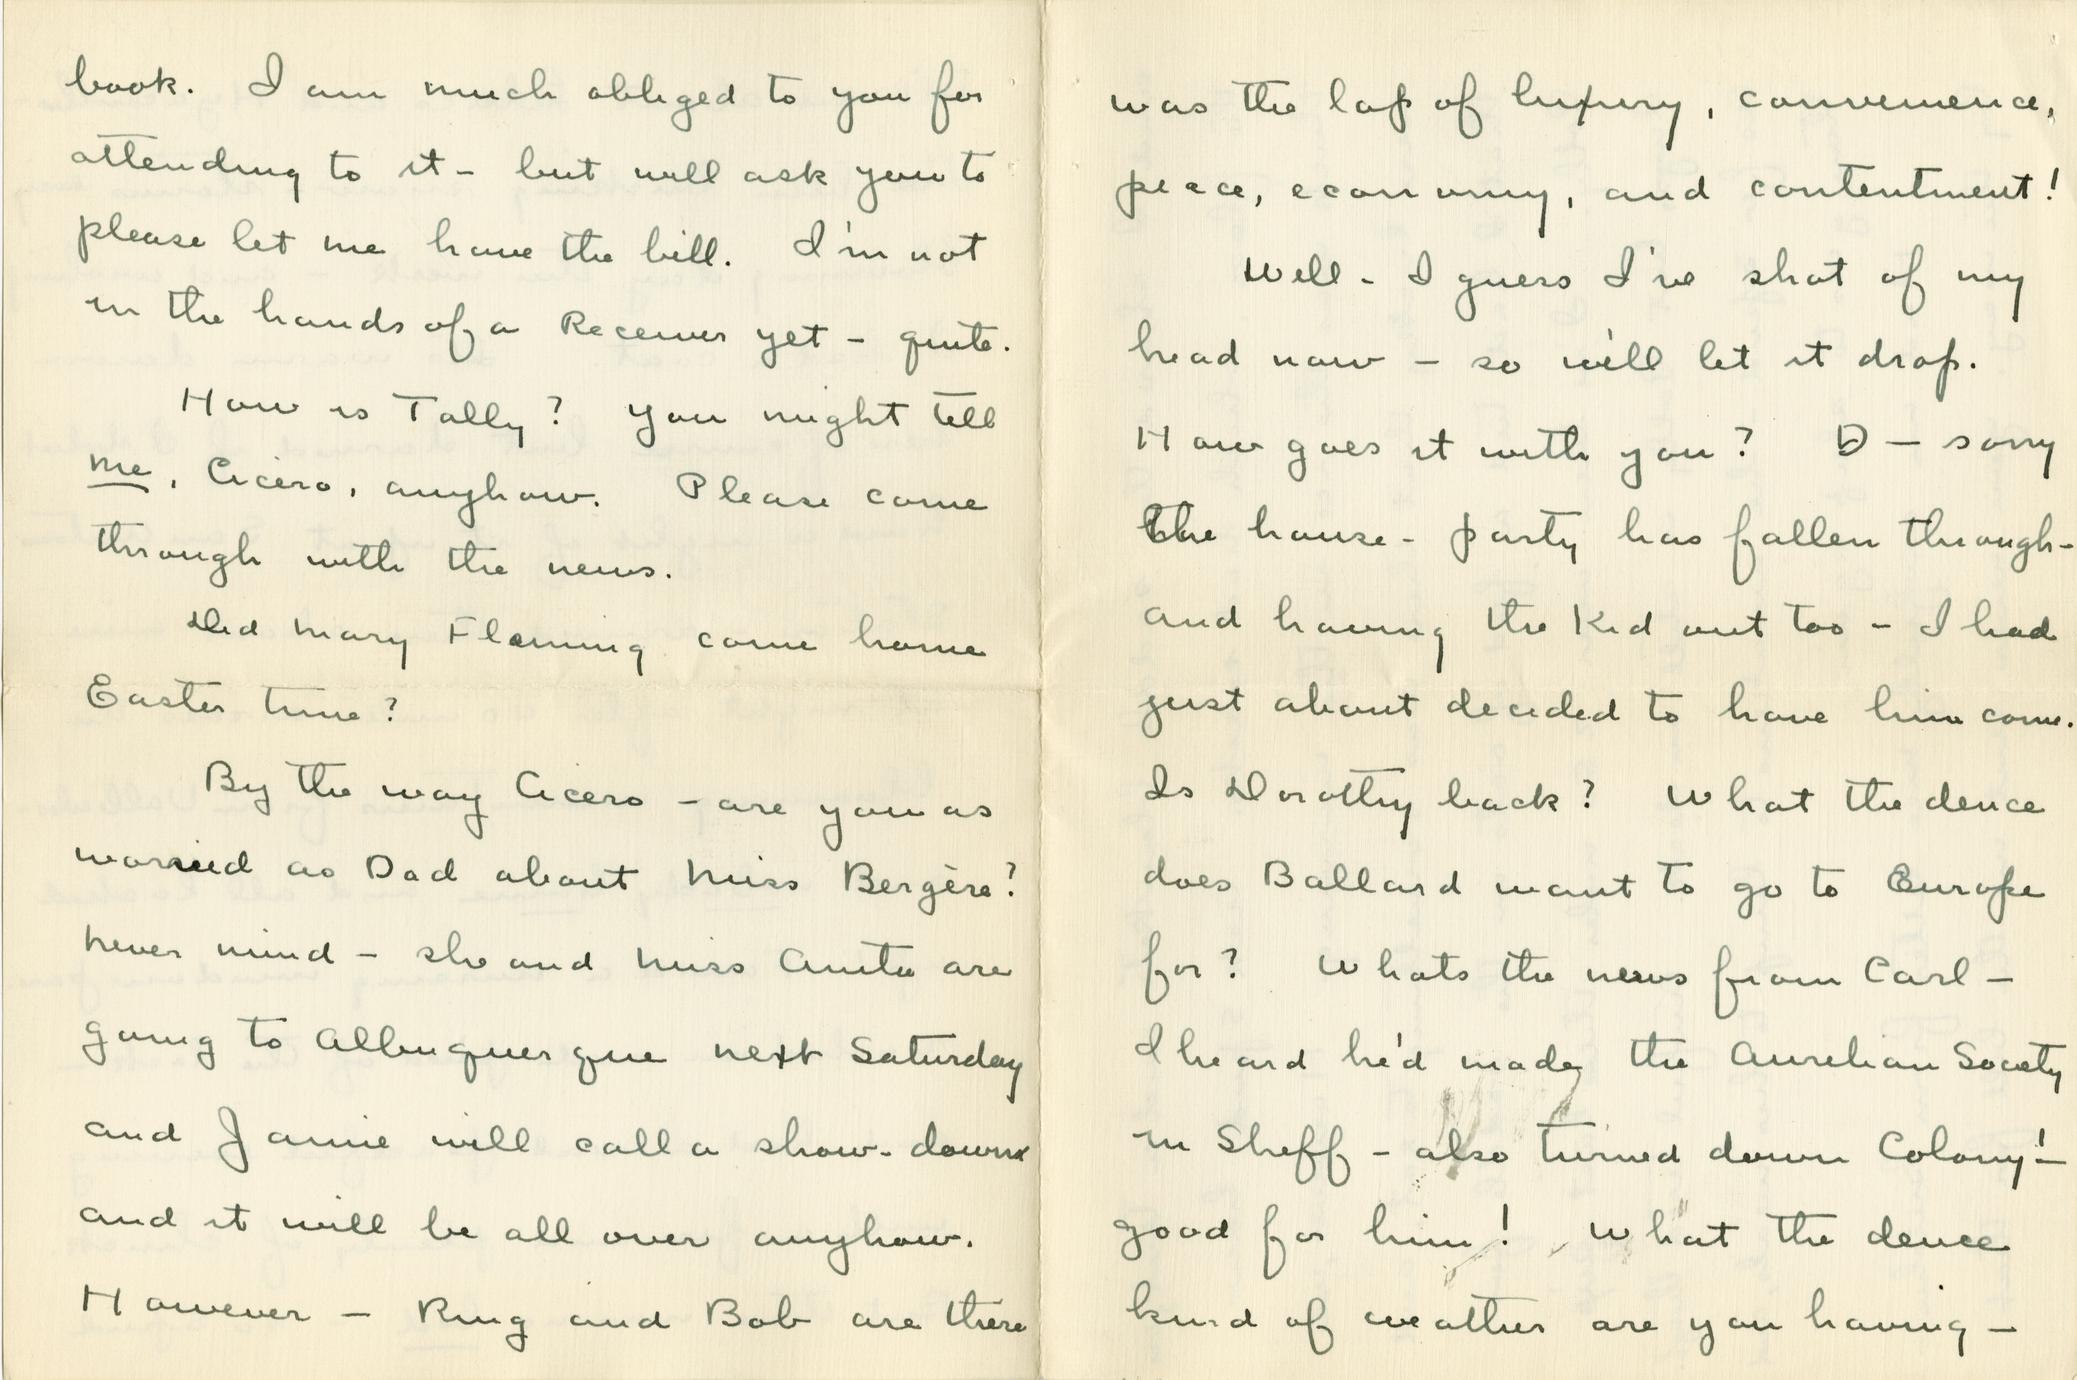 book. I am much obliged to you for
attending to it - but will ask you to
please let me have the bill. I'm not
in the hands of a Receiver yet - quite.
How is Tally? You might tell
me, Cicero, anyhow. Please come
through with the news.
Did Mary Fleming come home
Easter time?
By the way Cicero - are you as
worried as Dad about Miss Bergère?
Never mind - she and Miss Anita are
going to Albenquerque next Saturday
and Jamie will call a show-down
and it will be all over anyhow.
However - Ring and Bob are there
was the lap of luxury, convenience,
peace, economy, and contentment!
Well - I guess I've shot of my
head now - so will let it drop.
How goes it with you? D - sorry
the house-party has fallen through -
and having the Kid out too - I had
just about decided to have him come.
Is Dorothy back? What the deuce
does Ballard want to go to Europe
for? Whats the news from Carl -
I heard he'd made the Aurelian Society
in Sheff - also turned down Colony! -
good for him! What the deuce
kind of weather are you having -